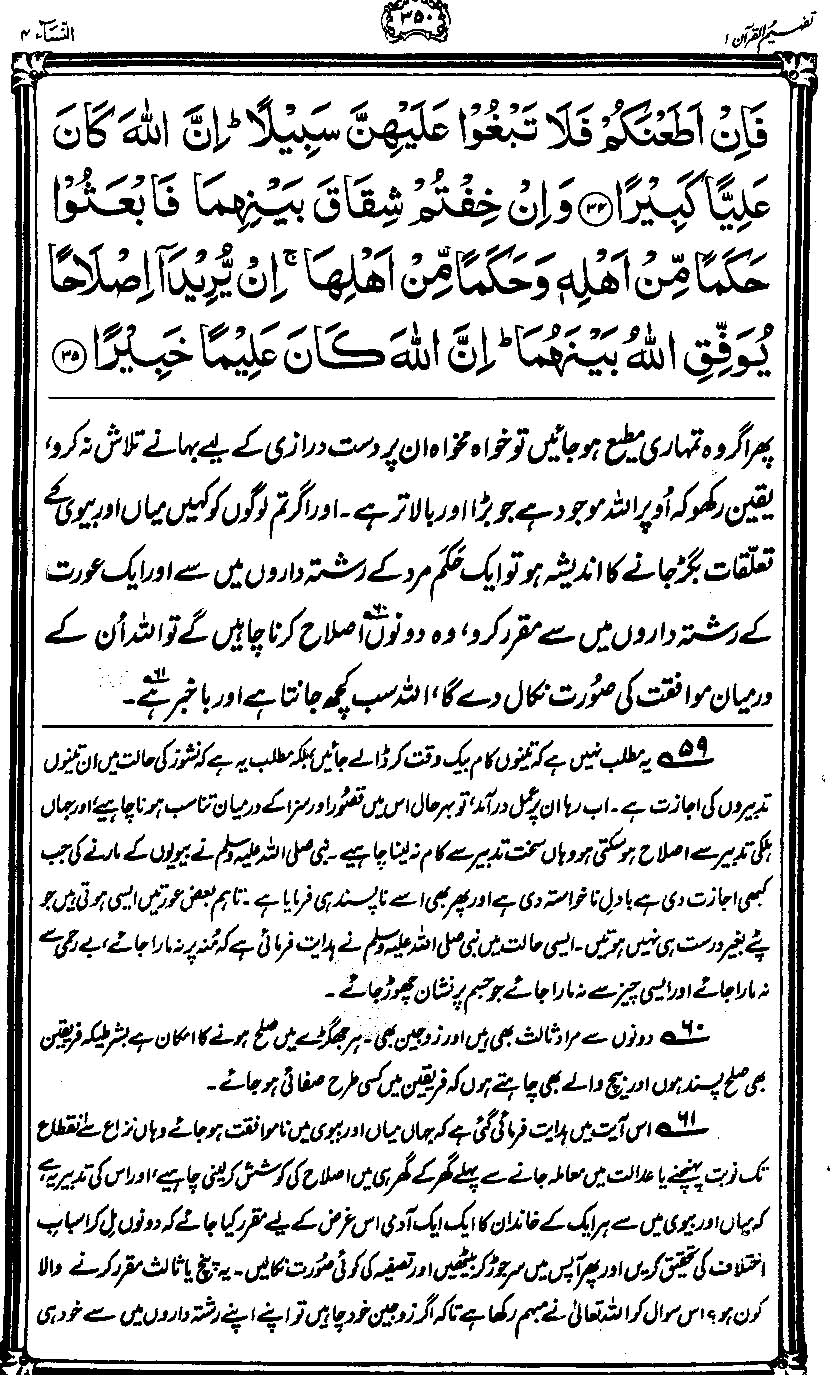 تفہیم القرآن ۱
۳۵۰
النساء ۴
فَاِنْ اَطَعْنَكُمْ فَلَا تَبْغُوْا عَلَيْهِنَّ سَبِيْلًا ؕ اِنَّ اللّٰهَ كَانَ
عَلِيًّا كَبِيْرًا ﴿۳۴﴾ وَاِنْ خِفْتُمْ شِقَاقَ بَيْنِهِمَا فَابْعَثُوْا
حَكَمًا مِّنْ اَهْلِهٖ وَحَكَمًا مِّنْ اَهْلِهَا ۚ اِنْ يُّرِيْدَاۤ اِصْلَاحًا
يُّوَفِّقِ اللّٰهُ بَيْنَهُمَا ؕ اِنَّ اللّٰهَ كَانَ عَلِيْمًا خَبِيْرًا ﴿۳۵﴾
پھر اگر وہ تمہاری مطیع ہو جائیں تو خواہ مخواہ ان پر دست درازی کے لیے بہانے تلاش نہ کرو،
یقین رکھو کہ اُوپر اللہ موجود ہے جو بڑا اور بالاتر ہے۔ اور اگر تم لوگوں کو کہیں میاں اور بیوی کے
تعلّقات بگڑ جانے کا اندیشہ ہو تو ایک حَکَم مرد کے رشتہ داروں میں سے اور ایک عورت
کے رشتہ داروں میں سے مقرر کرو، وہ دونوں۶۰ اصلاح کرنا چاہیں گے تو اللہ اُن کے
درمیان موافقت کی صُورت نکال دے گا، اللہ سب کچھ جانتا ہے اور باخبر ہے۶۱۔
۵۹ یہ مطلب نہیں ہے کہ تینوں کام بیک وقت کر ڈالے جائیں، بلکہ مطلب یہ ہے کہ نشوز کی حالت میں ان تینوں
تدبیروں کی اجازت ہے۔ اب رہا ان پر عمل درآمد، تو بہرحال اس میں قصُور اور سزا کے درمیان تناسب ہونا چاہیے، اور جہاں
ہلکی تدبیر سے اصلاح ہو سکتی ہو وہاں سخت تدبیر سے کام نہ لینا چاہیے۔ نبی صلی اللہ علیہ وسلم نے بیویوں کے مارنے کی جب
کبھی اجازت دی ہے بادلِ ناخواستہ دی ہے اور پھر بھی اسے ناپسند ہی فرمایا ہے۔ تاہم بعض عورتیں ایسی ہوتی ہیں جو
پٹے بغیر درست ہی نہیں ہوتیں۔ ایسی حالت میں نبی صلی اللہ علیہ وسلم نے ہدایت فرمائی ہے کہ مُنہ پر نہ مارا جائے، بے رحمی سے
نہ مارا جائے اور ایسی چیز سے نہ مارا جائے جو جسم پر نشان چھوڑ جائے۔
۶۰ دونوں سے مراد ثالث بھی ہیں اور زوجین بھی۔ ہر جھگڑے میں صلح ہونے کا امکان ہے بشرطیکہ فریقین
بھی صلح پسند ہوں اور بیچ والے بھی چاہتے ہوں کہ فریقین میں کسی طرح صفائی ہو جائے۔
۶۱ اس آیت میں ہدایت فرمائی گئی ہے کہ جہاں میاں اور بیوی میں ناموافقت ہو جائے وہاں نزاع سے انقطاع
تک نوبت پہنچنے یا عدالت میں معاملہ جانے سے پہلے گھر کے گھر ہی میں اصلاح کی کوشش کر لینی چاہیے، اور اس کی تدبیر یہ ہے
کہ میاں اور بیوی میں سے ہر ایک کے خاندان کا ایک ایک آدمی اس غرض کے لیے مقرر کیا جائے کہ دونوں مل کر اسبابِ
اختلاف کی تحقیق کریں اور پھر آپس میں سر جوڑ کر بیٹھیں اور تصفیہ کی کوئی صُورت نکالیں۔ یہ پنچ یا ثالث مقرر کرنے والا
کون ہو؟ اس سوال کو اللہ تعالیٰ نے مبہم رکھا ہے تاکہ اگر زوجین خود چاہیں تو اپنے اپنے رشتہ داروں میں سے خود ہی